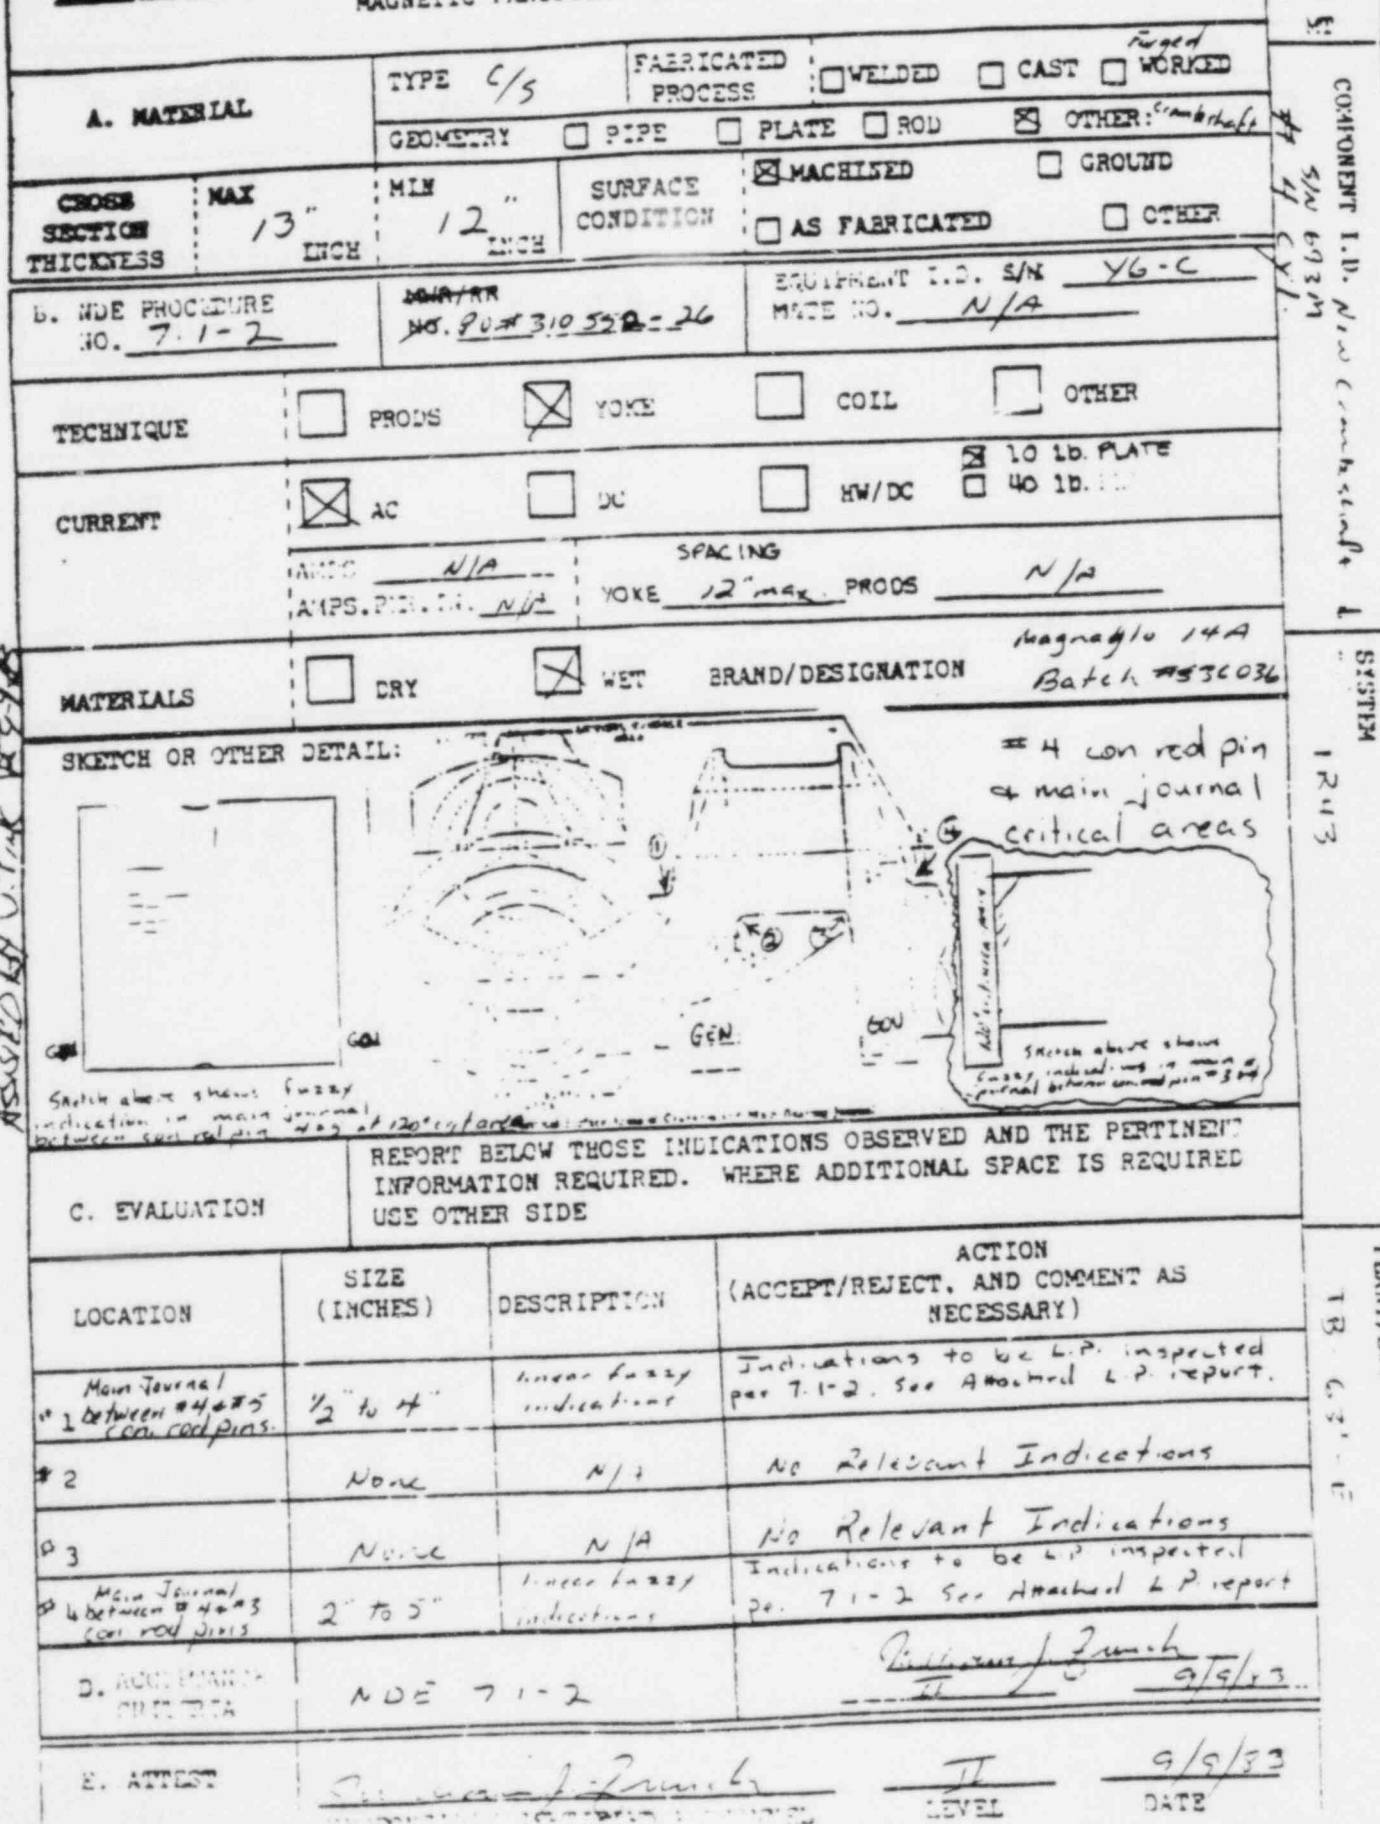 A. MATERIAL
TYPE C/S
FABRICATED PROCESS
WELDED
CAST
Forged
WORKED
GEOMETRY
PIPE
PLATE
ROD
OTHER: Crankshaft
CROSS SECTION THICKNESS
MAX
13" INCH
MIN
12" INCH
SURFACE CONDITION
MACHINED
GROUND
AS FABRICATED
OTHER
B. NDE PROCEDURE
NO. 7.1-2
MWR/RR
NO. PO# 310552-26
EQUIPMENT I.D. S/N YG-C
MATE NO. N/A
TECHNIQUE
PRODS
YOKE
COIL
OTHER
CURRENT
AC
DC
HW/DC
10 lb. PLATE
40 lb.
AMPS N/A
AMPS. PER. IN. N/A
SPACING
YOKE 12" max. PRODS N/A
MATERIALS
DRY
WET
BRAND/DESIGNATION
Magnaglo 14A
Batch #
SKETCH OR OTHER DETAIL:
# 4 con rod pin
& main journal
critical areas
1
4
2
3
GEN
GOV
GEN
GOV
Sketch above shows fuzzy
indication in main journal
between con rod pin at 120°
Sketch above shows
fuzzy indications in main
journal between con rod pin
C. EVALUATION
REPORT BELOW THOSE INDICATIONS OBSERVED AND THE PERTINENT
INFORMATION REQUIRED. WHERE ADDITIONAL SPACE IS REQUIRED
USE OTHER SIDE
LOCATION
SIZE
(INCHES)
DESCRIPTION
ACTION
(ACCEPT/REJECT, AND COMMENT AS
NECESSARY)
# 1 Main Journal
between #4 & #5
con. rod pins.
1/2" to 4"
linear fuzzy
indications
Indications to be L.P. inspected
per 7.1-2. See Attached L.P. report.
# 2
None
N/A
No Relevant Indications
# 3
None
N/A
No Relevant Indications
# 4 Main Journal
between #4 & #3
con rod pins
2" to 5"
linear fuzzy
indications
Indications to be L.P. inspected
per 7.1-2 See Attached L.P. report
D. ACCEPTANCE
CRITERIA
NDE 7.1-2
II
9/9/83
E. ATTEST
II
LEVEL
9/9/83
DATE
COMPONENT I.D. New Crankshaft
S/N 693M
# 4 Cyl.
SYSTEM
1R43